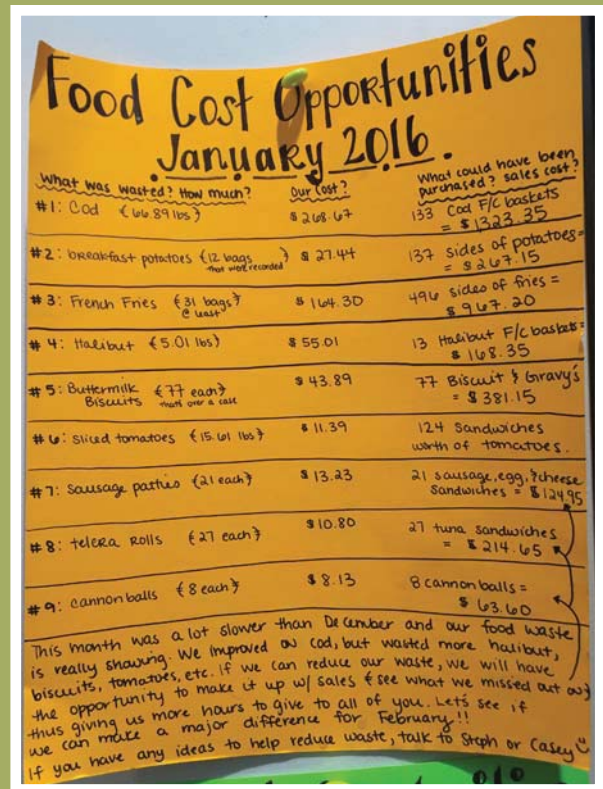 Food Cost Opportunities
January 2016.
What was wasted? How much? Our Cost? What could have been purchased? sales cost?
#1: Cod {66.89 lbs} $268.67 133 Cod F/C baskets
= $1323.35
#2: breakfast potatoes {12 bags } $27.44 137 sides of potatoes =
that were recorded $267.15
#3: French Fries {31 bags} $164.30 496 sides of fries =
@ least $967.20
#4: Halibut {5.01 lbs} $55.01 13 Halibut F/C baskets =
$168.35
#5: Buttermilk Biscuits {77 each} $43.89 77 Biscuit & Gravy's
that's over a case = $381.15
#6: sliced tomatoes {15.61 lbs} $11.39 124 Sandwiches
worth of tomatoes.
#7: Sausage patties {21 each} $13.23 21 sausage, egg, & cheese
Sandwiches = $124.95
#8: telera Rolls {27 each} $10.80 27 tuna sandwiches
= $214.65
#9: cannonballs {8 each} $8.13 8 cannonballs =
$63.60
This month was a lot slower than December and our food waste
is really showing. We improved on cod, but wasted more halibut,
biscuits, tomatoes, etc. If we can reduce our waste, we will have
the opportunity to make it up w/ sales {see what we missed out on}
thus giving us more hours to give to all of you. Let's see if
we can make a major difference for February!!
If you have any ideas to help reduce waste, talk to Steph or Casey